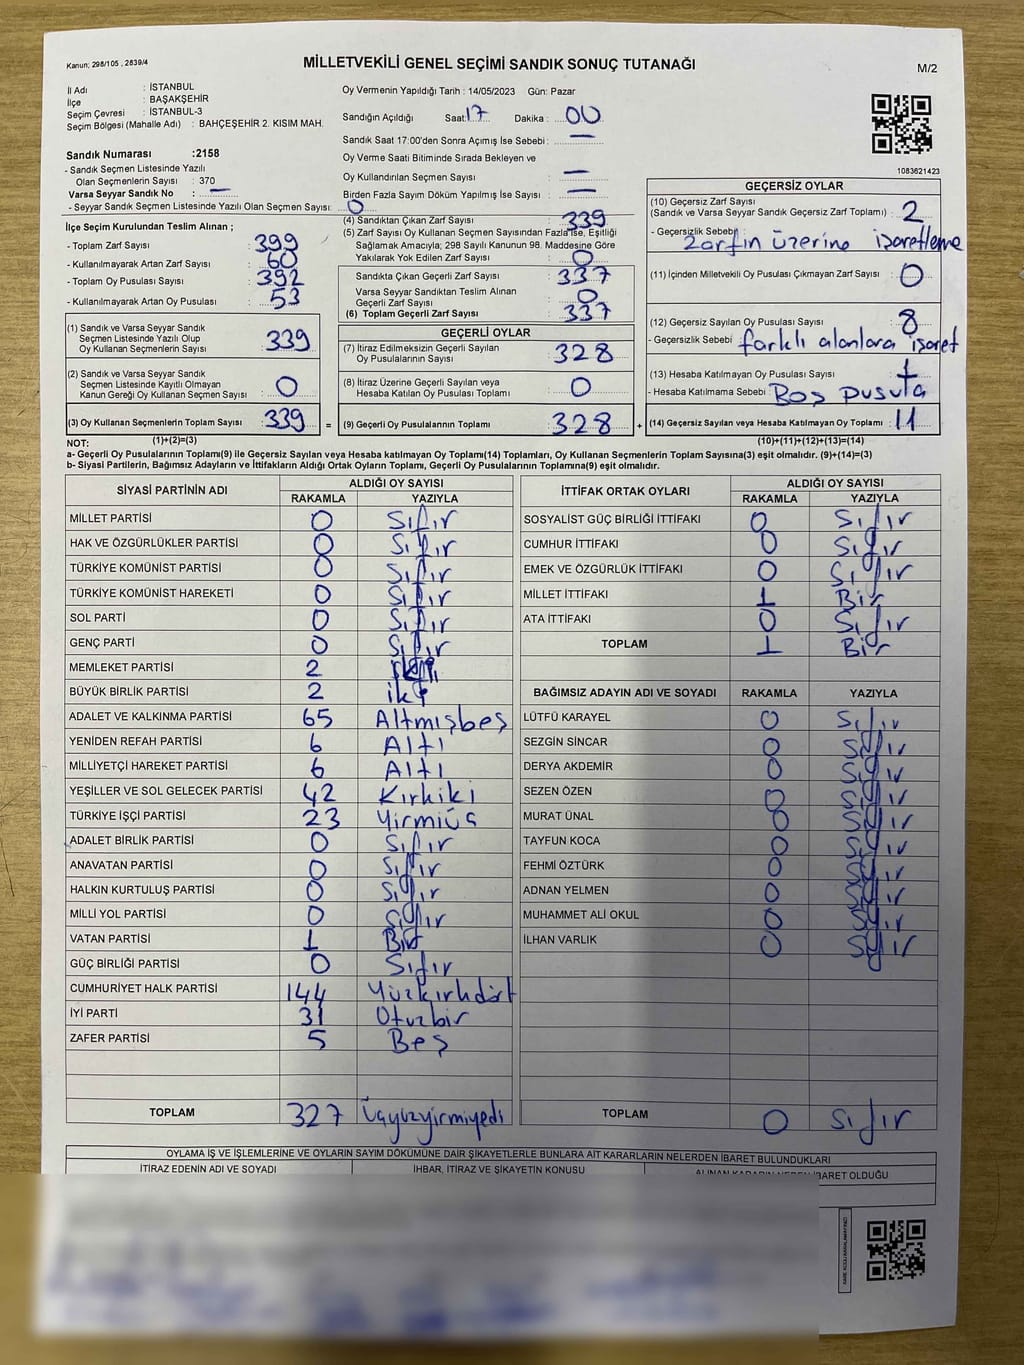 Kanun; 298/105 , 2839/4
MİLLETVEKİLİ GENEL SEÇİMİ SANDIK SONUÇ TUTANAĞI
M/2
İl Adı : İSTANBUL
İlçe : BAŞAKŞEHİR
Seçim Çevresi : İSTANBUL-3
Seçim Bölgesi (Mahalle Adı) : BAHÇEŞEHİR 2. KISIM MAH.
Sandık Numarası :2158
- Sandık Seçmen Listesinde Yazılı
Olan Seçmenlerin Sayısı : 370
Varsa Seyyar Sandık No : —
- Seyyar Sandık Seçmen Listesinde Yazılı Olan Seçmen Sayısı: 0
Oy Vermenin Yapıldığı Tarih : 14/05/2023 Gün: Pazar
Sandığın Açıldığı Saat: 17 Dakika : 00
Sandık Saat 17:00'den Sonra Açımış İse Sebebi : —
Oy Verme Saati Bitiminde Sırada Bekleyen ve
Oy Kullandırılan Seçmen Sayısı : —
Birden Fazla Sayım Döküm Yapılmış İse Sayısı : —
1083621423
İlçe Seçim Kurulundan Teslim Alınan ;
- Toplam Zarf Sayısı : 399
- Kullanılmayarak Artan Zarf Sayısı : 60
- Toplam Oy Pusulası : 392
- Kullanılmayarak Artan Oy Pusulası : 53
(1) Sandık ve Varsa Seyyar Sandık
Seçmen Listesinde Yazılı Olup
Oy Kullanan Seçmenlerin Sayısı : 339
(2) Sandık ve Varsa Seyyar Sandık
Seçmen Listesinde Kayıtlı Olmayan
Kanun Gereği Oy Kullanan Seçmen Sayısı : 0
(3) Oy Kullanan Seçmenlerin Toplam Sayısı : 339 =
(4) Sandıktan Çıkan Zarf Sayısı : 339
(5) Zarf Sayısı Oy Kullanan Seçmen Sayısından Fazla İse, Eşitliği
Sağlamak Amacıyla; 298 Sayılı Kanunun 98. Maddesine Göre
Yakılarak Yok Edilen Zarf Sayısı : 0
Sandıkta Çıkan Geçerli Zarf Sayısı : 337
Varsa Seyyar Sandıktan Teslim Alınan
Geçerli Zarf Sayısı : 0
(6) Toplam Geçerli Zarf Sayısı : 337
GEÇERLİ OYLAR
(7) İtiraz Edilmeksizin Geçerli Sayılan
Oy Pusulalarının Sayısı : 328
(8) İtiraz Üzerine Geçerli Sayılan veya
Hesaba Katılan Oy Pusulası Toplamı : 0
(9) Geçerli Oy Pusulalarının Toplamı : 328 +
GEÇERSİZ OYLAR
(10) Geçersiz Zarf Sayısı
(Sandık ve Varsa Seyyar Sandık Geçersiz Zarf Toplamı) : 2
- Geçersizlik Sebebi :
Zarfın üzerine işaretleme
(11) İçinden Milletvekili Oy Pusulası Çıkmayan Zarf Sayısı : 0
(12) Geçersiz Sayılan Oy Pusulası Sayısı : 8
- Geçersizlik Sebebi : farklı alanlara işaret
(13) Hesaba Katılmayan Oy Pusulası Sayısı : 1
- Hesaba Katılmama Sebebi : Boş pusula
(14) Geçersiz Sayılan veya Hesaba Katılmayan Oy Toplamı : 11
NOT: (1)+(2)=(3) (10)+(11)+(12)+(13)=(14)
a- Geçerli Oy Pusulalarının Toplamı(9) ile Geçersiz Sayılan veya Hesaba katılmayan Oy Toplamı(14) Toplamları, Oy Kullanan Seçmenlerin Toplam Sayısına(3) eşit olmalıdır. (9)+(14)=(3)
b- Siyasi Partilerin, Bağımsız Adayların ve İttifakların Aldığı Ortak Oyların Toplamı, Geçerli Oy Pusulalarının Toplamına(9) eşit olmalıdır.
SİYASİ PARTİNİN ADI ALDIĞI OY SAYISI
RAKAMLA YAZIYLA
MİLLET PARTİSİ 0 Sıfır
HAK VE ÖZGÜRLÜKLER PARTİSİ 0 Sıfır
TÜRKİYE KOMÜNİST PARTİSİ 0 Sıfır
TÜRKİYE KOMÜNİST HAREKETİ 0 Sıfır
SOL PARTİ 0 Sıfır
GENÇ PARTİ 0 Sıfır
MEMLEKET PARTİSİ 2
BÜYÜK BİRLİK PARTİSİ 2 iki
ADALET VE KALKINMA PARTİSİ 65 Altmışbeş
YENİDEN REFAH PARTİSİ 6 Altı
MİLLİYETÇİ HAREKET PARTİSİ 6 Altı
YEŞİLLER VE SOL GELECEK PARTİSİ 42 Kırkiki
TÜRKİYE İŞÇİ PARTİSİ 23 Yirmiüç
ADALET BİRLİK PARTİSİ 0 Sıfır
ANAVATAN PARTİSİ 0 Sıfır
HALKIN KURTULUŞ PARTİSİ 0 Sıfır
MİLLİ YOL PARTİSİ 0 Sıfır
VATAN PARTİSİ 1 Bir
GÜÇ BİRLİĞİ PARTİSİ 0 Sıfır
CUMHURİYET HALK PARTİSİ 144 Yüzkırkdört
İYİ PARTİ 31 Otuzbir
ZAFER PARTİSİ 5 Beş
TOPLAM 327 Üçyüzyirmiyedi
İTTİFAK ORTAK OYLARI ALDIĞI OY SAYISI
RAKAMLA YAZIYLA
SOSYALİST GÜÇ BİRLİĞİ İTTİFAKI 0 Sıfır
CUMHUR İTTİFAKI 0 Sıfır
EMEK VE ÖZGÜRLÜK İTTİFAKI 0 Sıfır
MİLLET İTTİFAKI 1 Bir
ATA İTTİFAKI 0 Sıfır
TOPLAM 1 Bir
BAĞIMSIZ ADAYIN ADI VE SOYADI RAKAMLA YAZIYLA
LÜTFÜ KARAYEL 0 Sıfır
SEZGİN SİNCAR 0 Sıfır
DERYA AKDEMİR 0 Sıfır
SEZEN ÖZEN 0 Sıfır
MURAT ÜNAL 0 Sıfır
TAYFUN KOCA 0 Sıfır
FEHMİ ÖZTÜRK 0 Sıfır
ADNAN YELMEN 0 Sıfır
MUHAMMET ALİ OKUL 0 Sıfır
İLHAN VARLIK 0 Sıfır
TOPLAM 0 Sıfır
OYLAMA İŞ VE İŞLEMLERİNE VE OYLARIN SAYIM DÖKÜMÜNE DAİR ŞİKAYETLERLE BUNLARA AİT KARARLARIN NELERDEN İBARET BULUNDUKLARI
İTİRAZ EDENİN ADI VE SOYADI İHBAR, İTİRAZ VE ŞİKAYETİN KONUSU ALINAN KARARIN NEDEN İBARET OLDUĞU